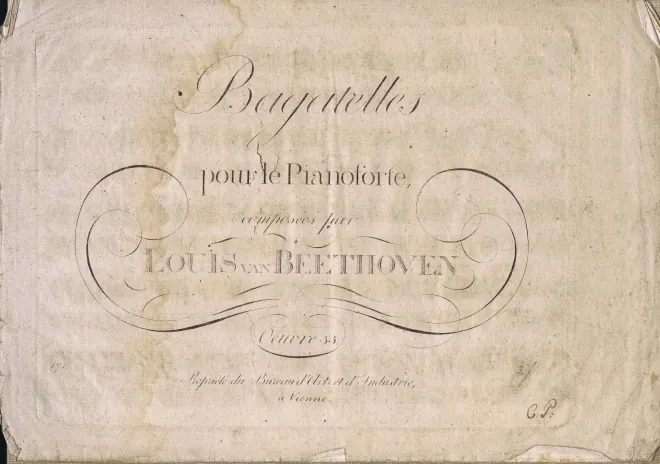 Bagatelles
pour le Pianoforte,
composées par
LOUIS VAN BEETHOVEN
Oeuvre 33
Propriété du Bureau d'Arts et d'Industrie,
à Vienne.
C. P.